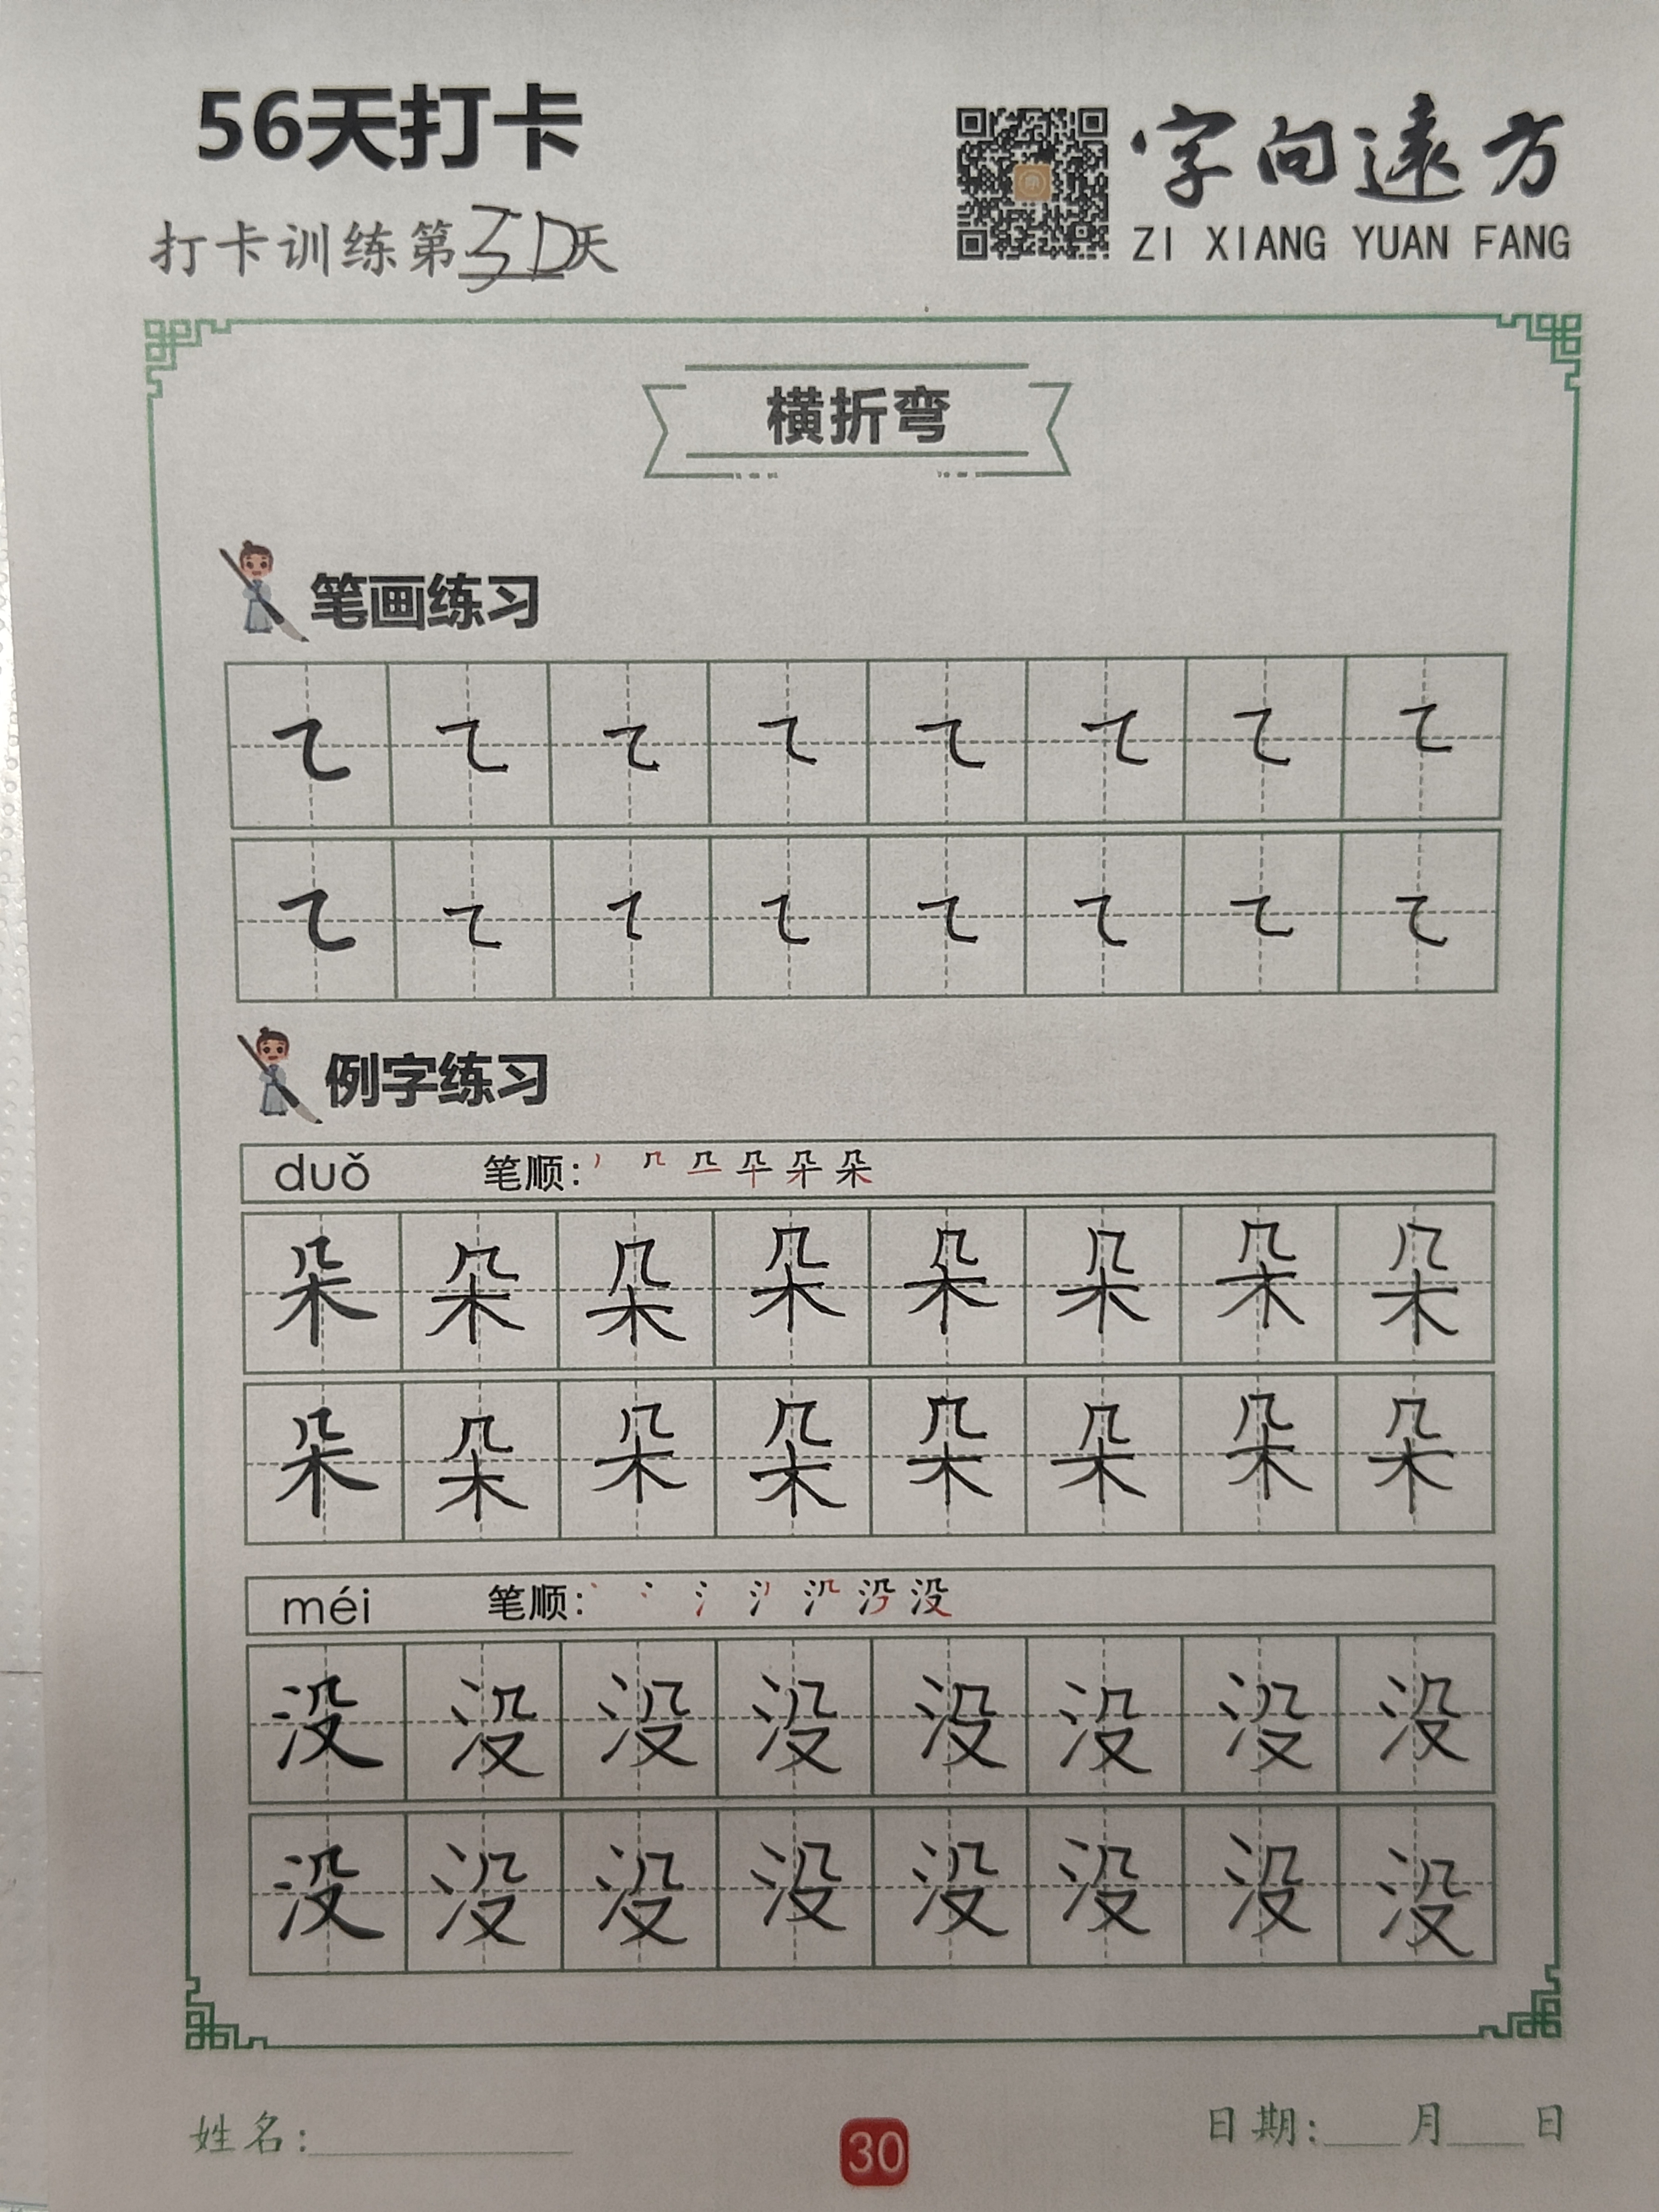 56天打卡
字向遠方
打卡训练第30天
ZI XIANG YUAN FANG
横折弯
笔画练习
例字练习
duǒ 笔顺:
朵 朵 朵 朵 朵 朵 朵 朵
朵 朵 朵 朵 朵 朵 朵 朵
méi 笔顺:
没 没 没 没 没 没 没 没
没 没 没 没 没 没 没 没
姓名:
30
日期: 月 日